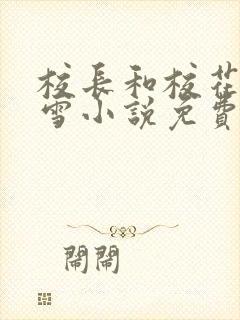 校長和校花
雪小說免費
鬧鬧